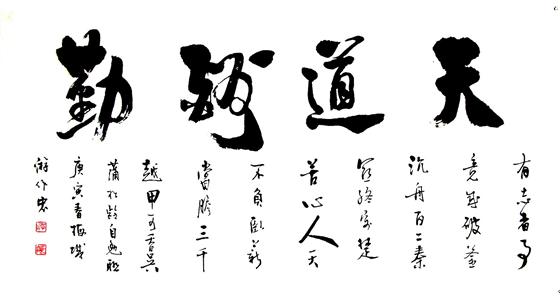 天道酬勤
有志者事
竟成破釜
沉舟百二秦
関终属楚
苦心人天
不負卧薪
嘗胆三千
越甲可吞吴
蒲松龄自勉联
庚寅春